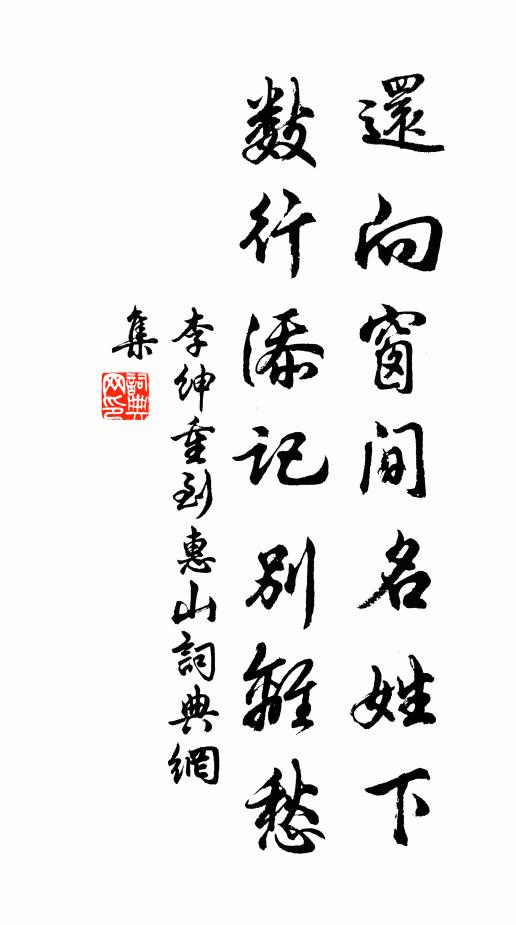 還向窗間名姓下
數行添記別離愁
李紳重到惠山詞典網
集
詞典
网印